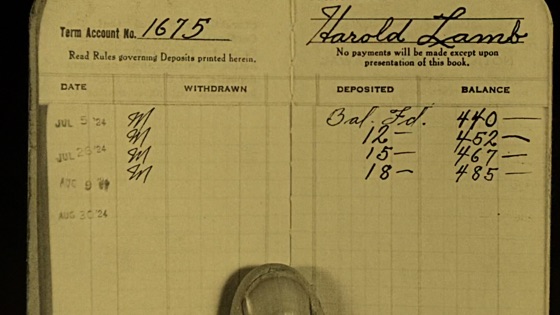 Term Account No. 1675
Harold Lamb
Read Rules governing Deposits printed herein.
No payments will be made except upon
presentation of this book.
DATE WITHDRAWN DEPOSITED BALANCE
JUL 5 '24 M Bal. Fd. 440—
M 12— 452—
JUL 26 '24 M 15— 467—
AUG 9 M 18— 485—
AUG 30 '24